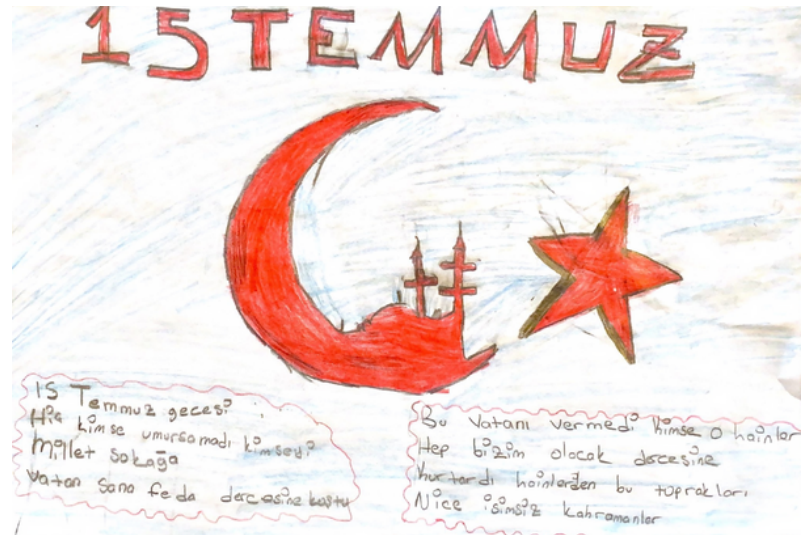 15 TEMMUZ
15 Temmuz gecesi
Hiç kimse umursamadı kimseyi
Millet sokağa
Vatan sana feda dercesine koştu
Bu vatanı vermedi kimse o hainler
Hep bizim olacak dercesine
Kurtardı hainlerden bu toprakları
Nice isimsiz kahramanlar